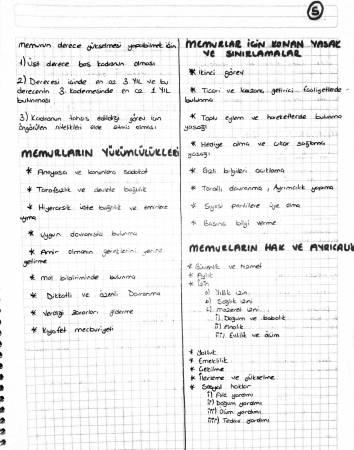 5
memurun derece yükselmesi yapabilmek için
1) Üst derece boş kadronun olması
2) Derecesi içinde en az 3 YIL ve bu
derecenin 3. kademesinde en az 1 YIL
bulunması
3) Kadronun tahsis edildiği görev için
öngörülen nitelikleri elde etmiş olması
MEMURLARIN YÜKÜMLÜLÜKLERİ
* Anayasa ve kanunlara sadakat
* Tarafsızlık ve devlete bağlılık
* Hiyerarşik üste bağlılık ve emirlere
uyma
* Uygun davranışta bulunma
* Amir olmanın gereklerini yerine
getirme
* Mal bildiriminde bulunma
* Dikkatli ve özenli Davranma
* Verdiği zararları giderme
* Kıyafet mecburiyeti
MEMURLAR İÇİN KONAN YASAK
VE SINIRLAMALAR
* İkinci görev
* Ticari ve kazanç getirici faaliyetlerde
bulunma
* Toplu eylem ve hareketlerde bulunma
yasağı
* Hediye alma ve çıkar sağlama
yasağı
* Gizli bilgileri açıklama
* Taraflı davranma, Ayrımcılık yapma
* Siyasi partilere üye olma
* Basına bilgi verme
MEMURLARIN HAK VE AYRICALIK
* Güvenlik ve hizmet
* Aylık
* İzin
a) Yıllık izin
b) Sağlık izni
c) Mazeret izni
i) Doğum ve babalık
ii) Analık
iii) Evlilik ve ölüm
* Yolluk
* Emeklilik
* Çekilme
* İlerleme ve yükselme
* Sosyal haklar
i) Aile yardımı
ii) Doğum yardımı
iii) Ölüm yardımı
iiii) Tedavi yardımı